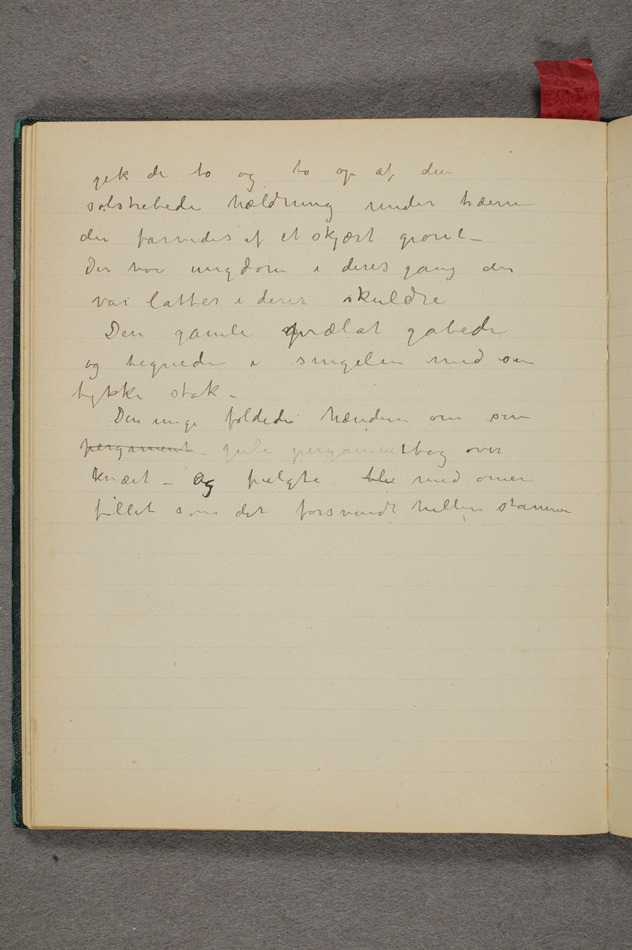 gik de to og to op af den
solstribede hældning under træerne
der farvedes af et skjært grønt –
Der var ungdom i deres gang der
var latter i deres skuldre
Den gamle prælat gabede
og tegnede i singelen med sin
tykke stok –
Den unge foldede hænderne om sin
pergament gule pergamentbog over
knæet – Og fulgte med
følget som det forsvandt mellem stammerne